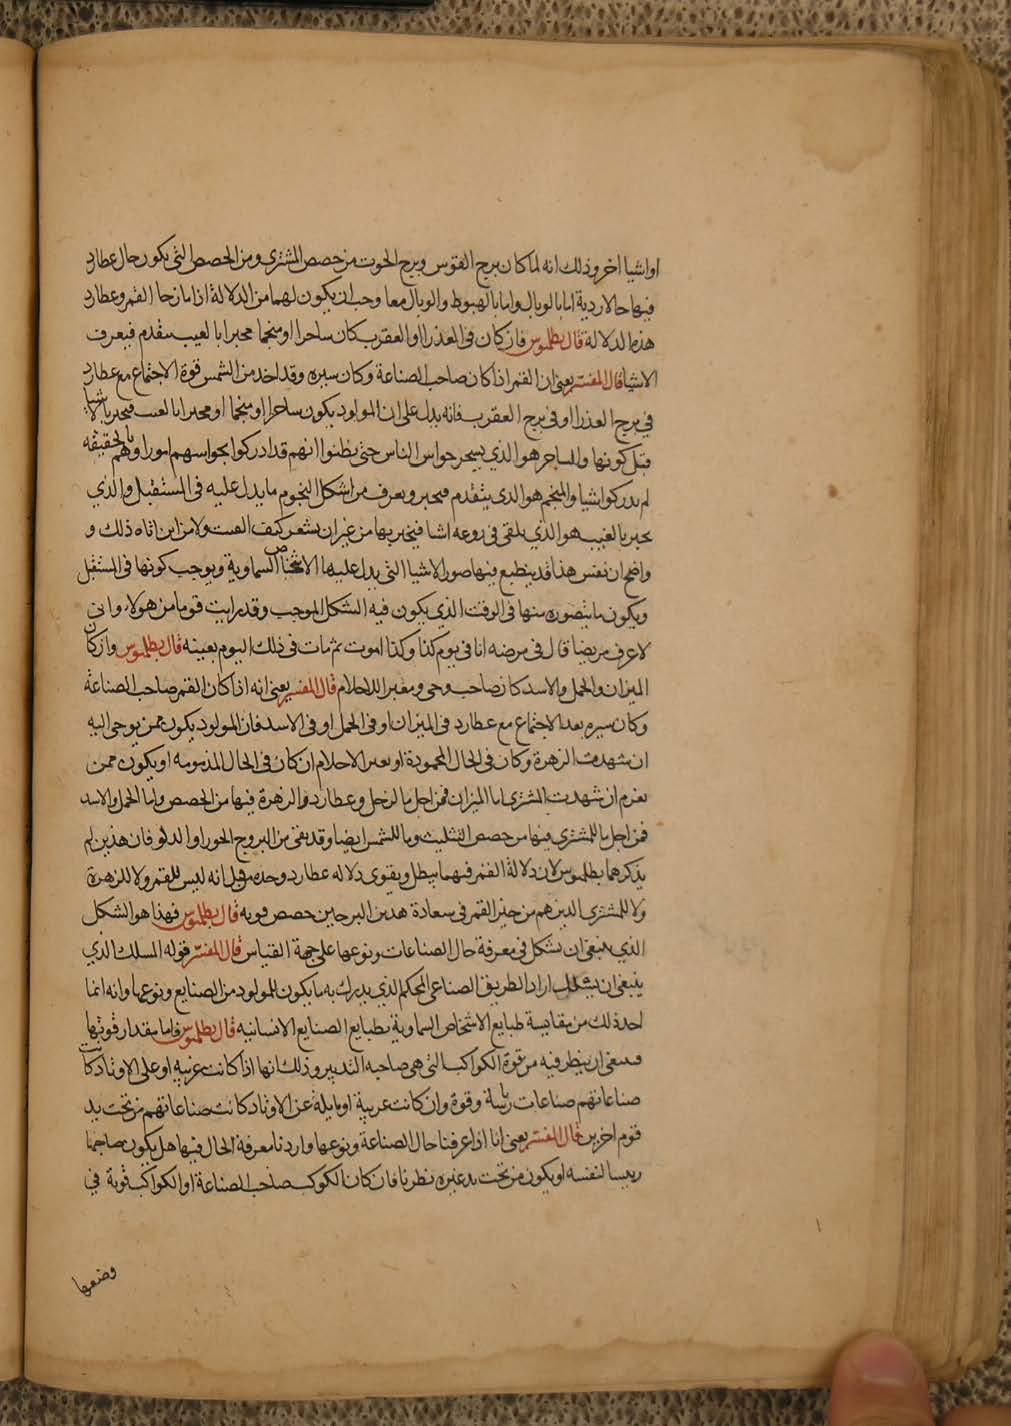 او اشيا اخر وذلك انه لما كان برج القوس وبرج الحوت من حصص المشترى ومن الحصص التى يكون حال عطارد
فيها حالا ردية اما بالوبال واما بالهبوط والوبال معا وجب ان يكون لهما من الدلالة اذا مازجا القمر وعطارد
هذه الدلالة قال بطلميوس فان كان فى العذرا او العقرب كان ساحرا او منجما مخبرا بالغيب يتقدم فيعرف
الاشيا قال المفسر يعنى ان القمر اذا كان صاحب الصناعة وكان سيره وقد اخذ من الشمس قوة الاجتماع مع عطارد
في برج العذرا او فى برج العقرب فانه يدل على ان المولود يكون ساحرا او منجما او مخبرا بالغيب فيخبر بالاشيا
قبل كونها والساحر هو الذي يسحر حواس الناس حتى يظنوا انهم قد ادركوا بحواسهم امورا وهم بالحقيقه
لم يدركوا شيا والمنجم هو الذى يتقدم فيخبر ويعرف من اشكال النجوم ما يدل عليه فى المستقبل والذي
يخبر بالغيب هو الذي يلقى فى روعه اشيا فيخبر بها من غير ان يشعر كيف الغيب ولا من اين اتاه ذلك و
واضح ان نفس هذا قد ينطبع فيها صور الاشيا التى يدل عليها الاشخاص السماوية ويوجب كونها فى المستقبل
ويكون ما يتصوره منها فى الوقت الذي يكون فيه الشكل الموجب وقد رايت قوما من هولاء وانى
لاعرف مريضا قال فى مرضه انا فى يوم كذا وكذا اموت ثم مات فى ذلك اليوم بعينه قال بطلميوس وان كان
الميزان والحمل والاسد كان صاحب وحى ومعبرا للاحلام قال المفسر يعنى انه اذا كان القمر صاحب الصناعة
وكان سيره بعد الاجتماع مع عطارد فى الميزان او فى الحمل او فى الاسد فان المولود يكون ممن يوحى اليه
ان شهدت الزهرة وكان فى الحال المحمودة او يعبر الاحلام ان كان فى الحال المذمومه او يكون ممن
يعزم ان شهدت المشترى اما الميزان فمن اجل ما لزحل وعطارد والزهرة فيها من الحصص واما الحمل والاسد
فمن اجل ما للمشترى فيها من حصص التثليث وما للشمس ايضا وقد بقى من البروج الجوزا والدلو فان هذين لم
يذكرهما بطلميوس لان دلالة القمر فيهما يبطل ويقوى دلاله عطارد وحده من قبل انه ليس للقمر ولا للزهرة
ولا للمشترى الذين هم من حيز القمر فى سعادة هذين البرجين حصص قويه قال بطلميوس فهذا هو الشكل
الذي ينبغى ان يشكل فى معرفة حال الصناعات ونوعها على جهة القياس قال المفسر قوله السلك الذي
ينبغى ان يشكل اراد الطريق الصناعى المحكم الذي يدرك به ما يكون للمولود من الصنايع ونوعها وانه انما
اخذ ذلك من مقايسة طبايع الاشخاص السماوية بطبايع الصنايع الانسانيه قال بطلميوس فاما مقدار قوتها
فينبغى ان ينظر فيه من قوة الكواكب التى هى صاحبه التدبير وذلك انها اذا كانت غربيه او على الاوتاد كانت
صناعاتهم صناعات رئيسة وقوة وان كانت غربية او مايلة عن الاوتاد كانت صناعاتهم من تحت يد
قوم اخرين قال المفسر يعنى انا اذا عرفنا حال الصناعة ونوعها واردنا معرفة الحال فيها هل يكون صاحبها
رييسا لنفسه او يكون من تحت يد غيره نظرنا فان كان الكوكب صاحب الصناعة او الكواكب قوية في
وضعها